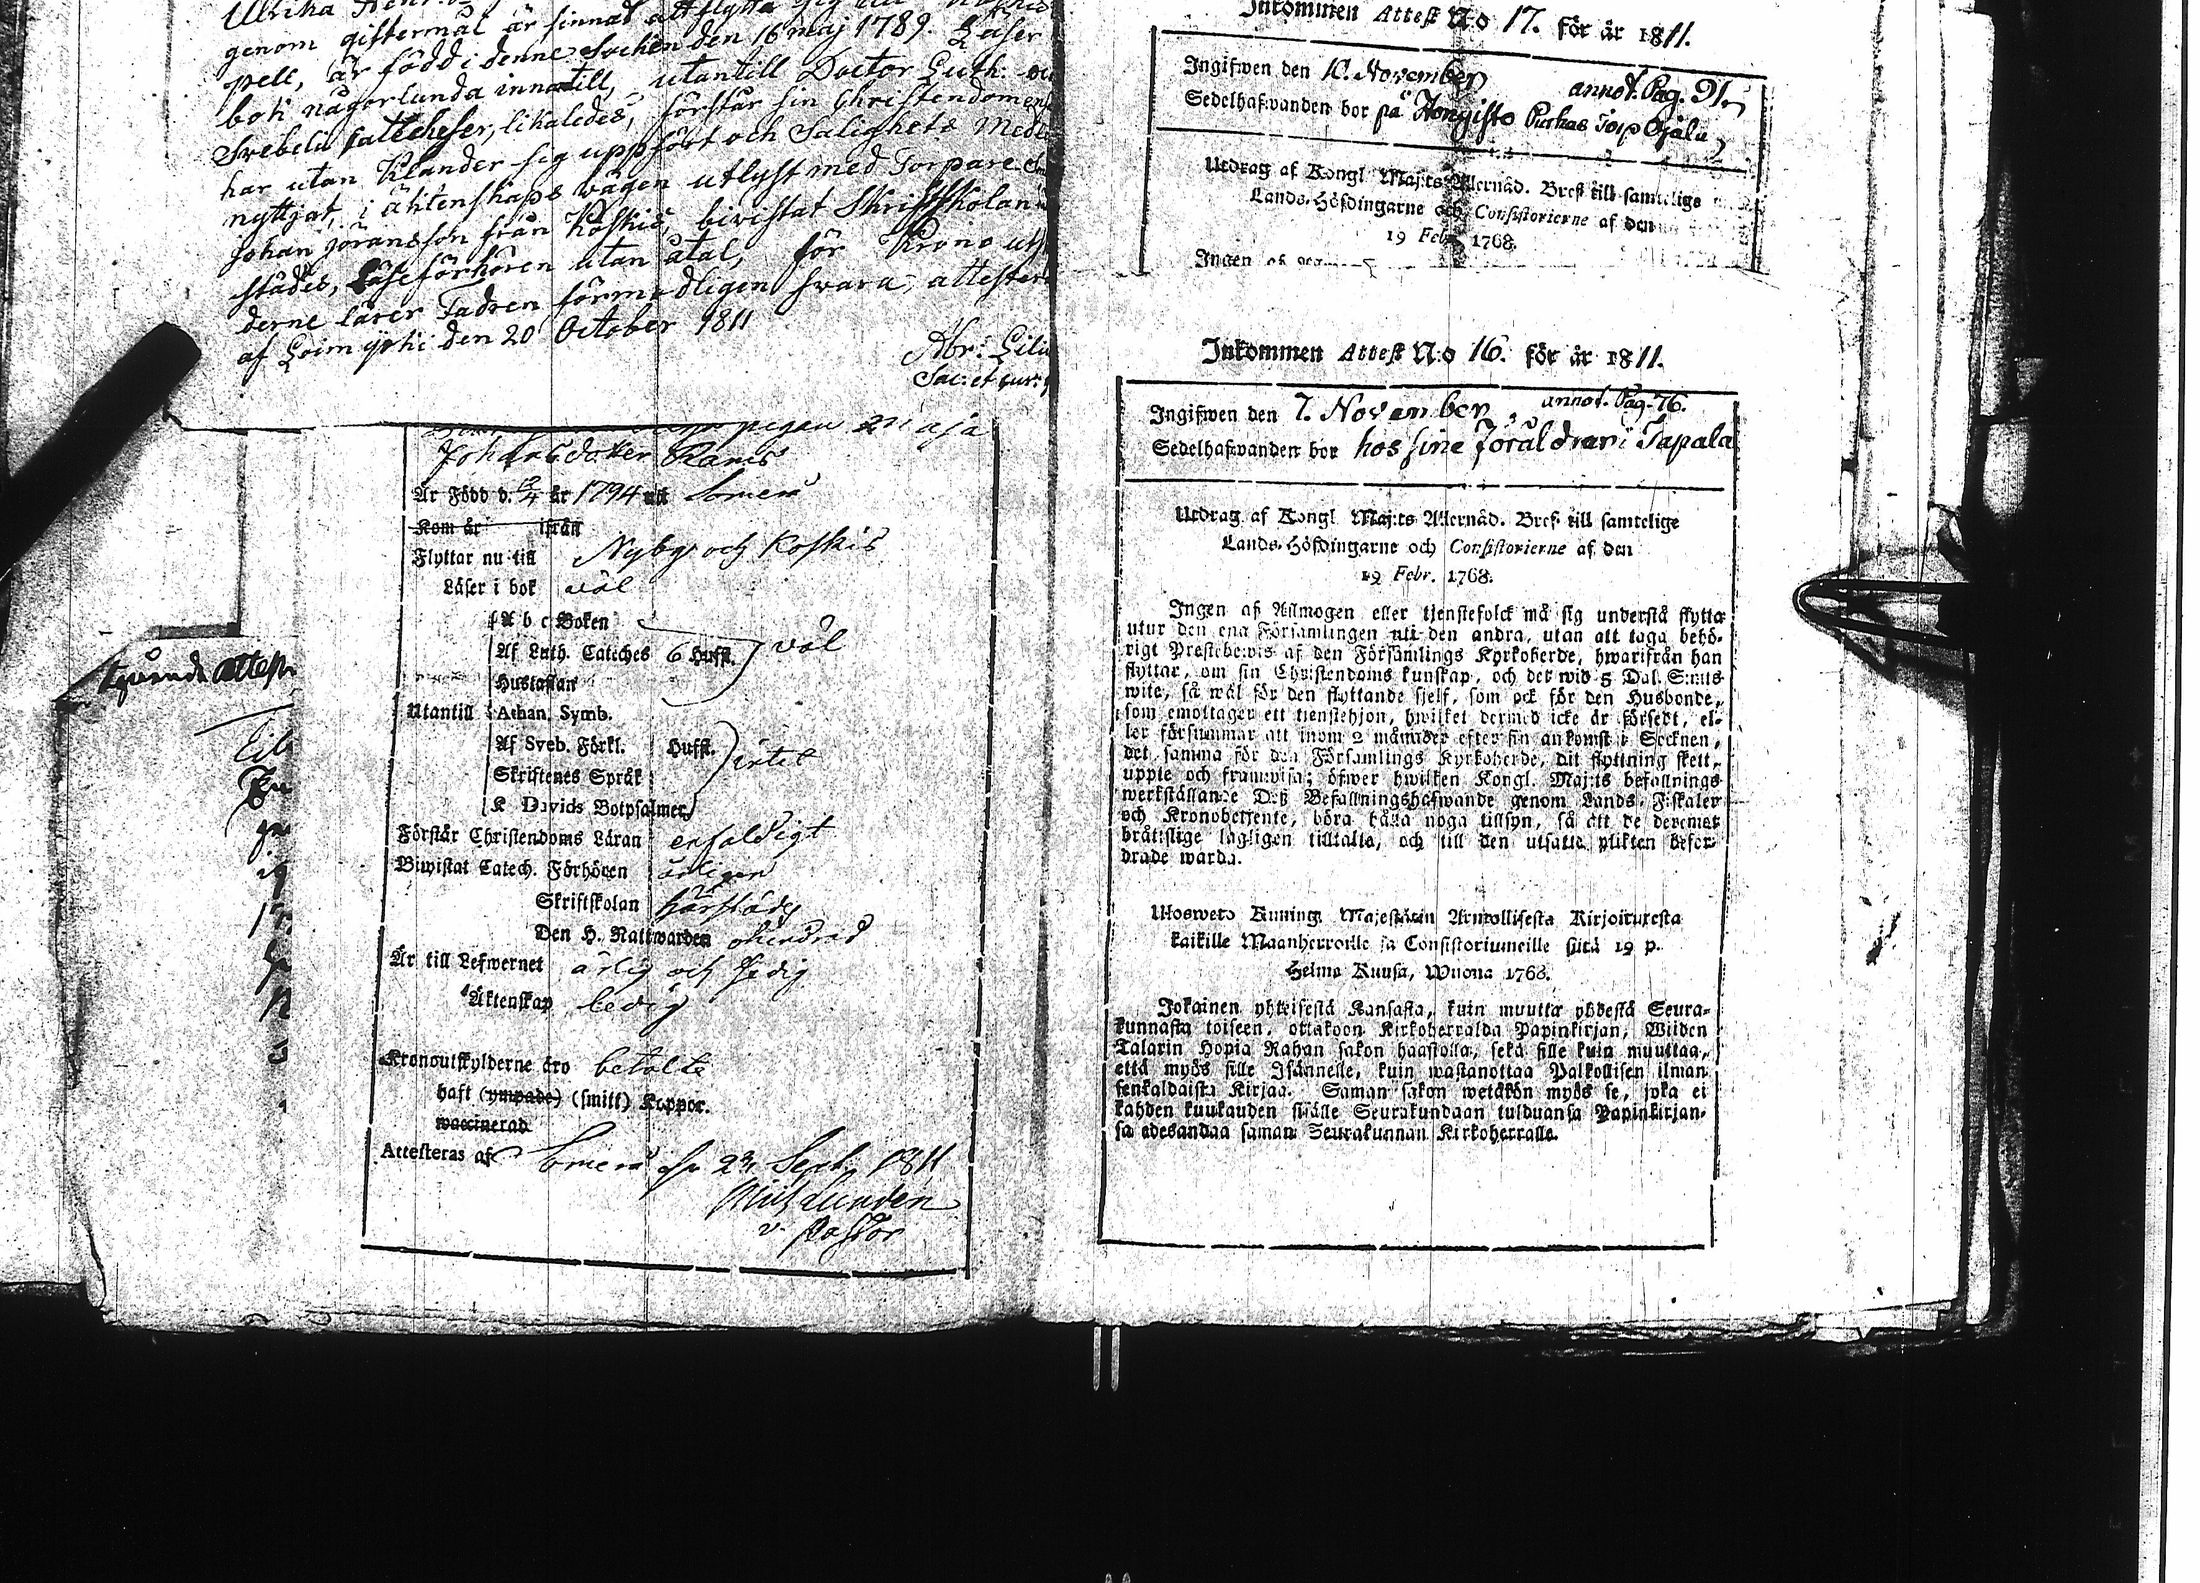 Ulrika
genom giftermål är sinnad att flytta sig
pell, är född i denne Sochen den 16 maj 1789. Läser
bok någorlunda innantill, utantill Doctor Luth. och
Svebelii Catecheser, likaledes, förstår sin Christendom
har utan Klander sig uppfört och Salighets Mede
nyttjat, i ächtenskaps vägen utlyst med Torpare
Johan Jöransson från Koskis, bivistat Skriftskolan
städes, Läseförhören utan åtal, för Krono ut
derne lärer Fadren förmodligen svara, attestera
af Loimijoki den 20 October 1811
Abr: Lilu
Sac: et cur:
pigan Maja
Johansdotter Rams
Är Född d. 13/4 år 1794 uti Somero
Kom år ifrån
Flyttar nu till Nyby och Koskis
Läser i bok väl
A b c Boken
Af Luth. Catéches 6 Hufst. väl
Hustaflan
Utantill Athan. Symb.
Af Sveb. Förkl. Hufst.
Skriftenes Språk
K Davids Botpsalmer
Förstår Christendoms Läran enfaldigt
Biwistat Catech. Förhören årligen
Skriftskolan härstädes
Den H. Nattwarden ohindrad
Är till Lefwernet ärlig och sedig
Äktenskap ledig
Kronoutskylderne äro betalte
haft (ympade) (smitt) Koppor.
waccinerad
Attesteras af Somero d. 23 Sept. 1811
v. Pastor
attest
Inkommen Attest N:o 17. för år 1811.
Ingifwen den 10. November annot. Pag. 91.
Sedelhafwanden bor på Hongisto Purhas Torp Ojala
Utdrag af Kongl Maj:ts Allernåd. Bref till samtelige
Lands-Höfdingarne och Consistorierne af den
19 Febr. 1768.
Ingen af
Inkommen Attest N:o 16. för år 1811.
Ingifwen den 7. November annot. Pag. 76.
Sedelhafwanden bor hos sine Föräldrar i Tapala
Utdrag af Kongl Maj:ts Allernåd. Bref till samtelige
Lands-Höfdingarne och Consistorierne af den
19 Febr. 1768.
Ingen af Allmogen eller tjenstefolck må sig understå flytta
utur den ena Församlingen uti den andra, utan att taga behö-
rigt Prestebewis af den Församlings Kyrkoherde, hwarifrån han
flyttar, om sin Christendoms kunskap, och det wid 5 Dal. S:mts
wite, så wäl för den flyttande sjelf, som ock för den Husbonde,
som emottager ett tjenstehjon, hwilket dermed icke är försedt, el-
ler försummar att inom 2 månader efter sin ankomst i Socknen,
det samma för den Församlings Kyrkoherde, dit flyttning skett,
uppte och framwisa; öfwer hwilken Kongl. Maj:ts befallnings
werkställande Deß Befallningshafwande genom Lands-Fiskaler
och Kronobetjente, böra hålla noga tillsyn, så att de deremot
brätsslige lagligen tilltalta, och till den utsatte plikten befor-
drade warda.
Uloswetö Kuning. Majestätin Armollisesta Kirjoituxesta
kaikille Maanherroille ja Consistoriumeille siitä 19 p.
Helmi Kuusa, Wuona 1768.
Jokainen yhteisestä Kansasta, kuin muutta yhdestä Seura-
kunnasta toiseen, ottakoon Kirkoherralda Papinkirjan, Wiiden
Talarin Hopia Rahan sakon haastolla, sekä sille kuin muuttaa,
että myös sille Isännelle, kuin wastanottaa Palkollisen ilman
senkaldaista Kirjaa. Saman sakon wetäkön myös se, joka ei
kahden kuukauden sisälle Seurakundaan tulduansa Papinkirjan-
sa edesandaa saman Seurakunnan Kirkoherralle.